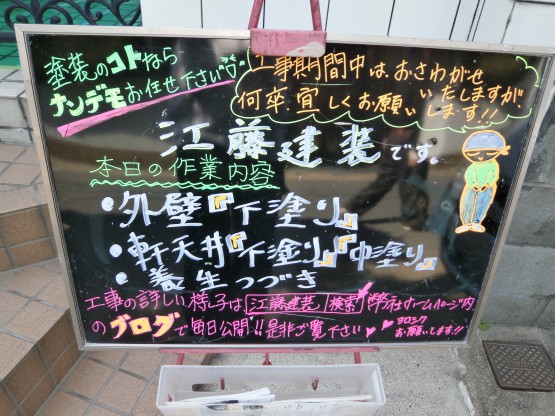 塗装のコトなら
ナンデモお任せ下さい
工事期間中は、おさわがせ
いたしますが、
何卒、宜しくお願いします!!
江藤建装です。
本日の作業内容
・外壁『下塗り』
・軒天井『下塗り』『中塗り』
・養生つづき
工事の詳しい様子は 江藤建装 検索 弊社ホームページ内
のブログで毎日公開!!是非ご覧下さい
ヨロシク
お願いします!!